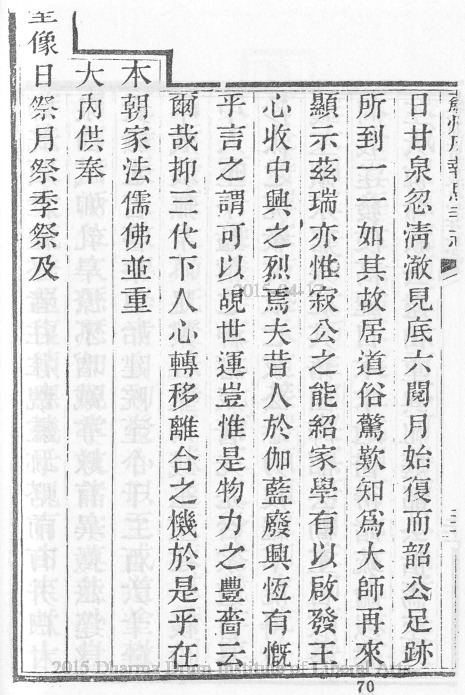 蘇州府報恩寺志
日甘泉忽淸澈見底六閱月始復而韶公足跡
所到一一如其故居道俗驚歎知爲大師再來
顯示茲瑞亦惟寂公之能紹家學有以啟發王
心收中興之烈焉夫昔人於伽藍廢興恆有慨
乎言之謂可以覘世運豈惟是物力之豐嗇云
爾哉抑三代下人心轉移離合之機於是乎在
本朝家法儒佛並重
大內供奉
聖像日祭月祭季祭及
2015-04-13
2015 Dharma Drum Institute of Liberal Arts
70